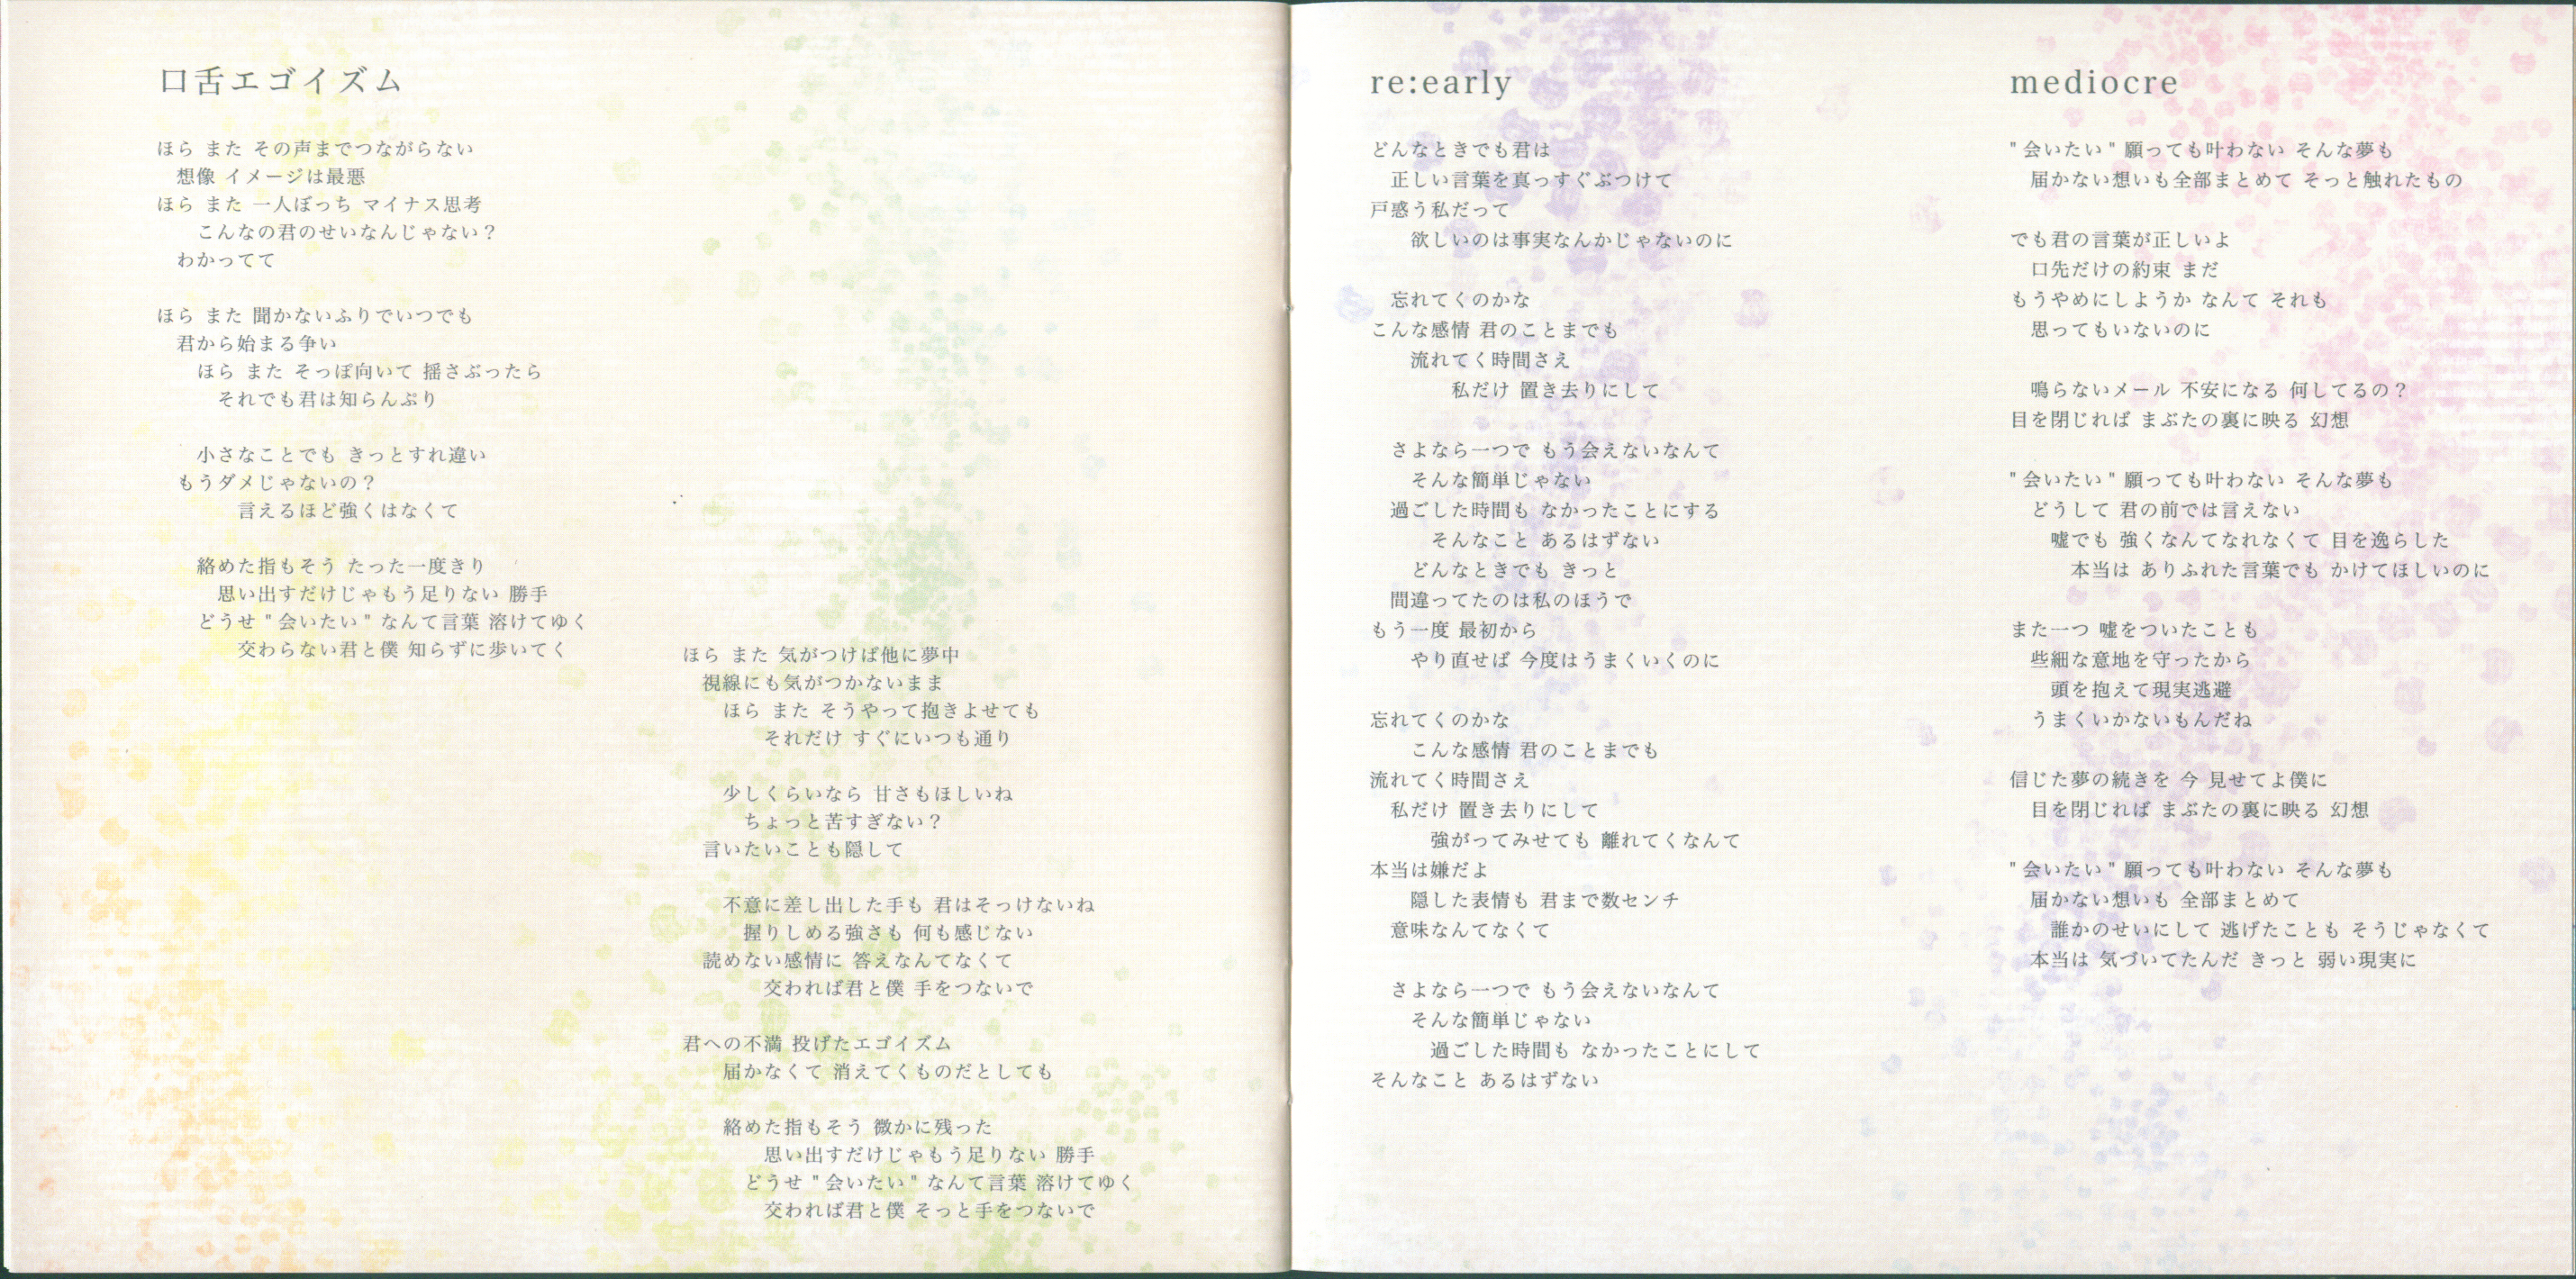 口舌エゴイズム
ほら また その声までつながらない
想像 イメージは最悪
ほら また 一人ぼっち マイナス思考
こんなの君のせいなんじゃない？
わかってて
ほら また 聞かないふりでいつでも
君から始まる争い
ほら また そっぽ向いて 揺さぶったら
それでも君は知らんぷり
小さなことでも きっとすれ違い
もうダメじゃないの？
言えるほど強くはなくて
絡めた指もそう たった一度きり
思い出すだけじゃもう足りない 勝手
どうせ "会いたい" なんて言葉 溶けてゆく
交わらない君と僕 知らずに歩いてく
ほら また 気がつけば他に夢中
視線にも気がつかないまま
ほら また そうやって抱きよせても
それだけ すぐにいつも通り
少しくらいなら 甘さもほしいね
ちょっと苦すぎない？
言いたいことも隠して
不意に差し出した手も 君はそっけないね
握りしめる強さも 何も感じない
読めない感情に 答えなんてなくて
交われば君と僕 手をつないで
君への不満 投げたエゴイズム
届かなくて 消えてくものだとしても
絡めた指もそう 微かに残った
思い出すだけじゃもう足りない 勝手
どうせ "会いたい" なんて言葉 溶けてゆく
交われば君と僕 そっと手をつないで
re:early
どんなときでも君は
正しい言葉を真っすぐぶつけて
戸惑う私だって
欲しいのは事実なんかじゃないのに
忘れてくのかな
こんな感情 君のことまでも
流れてく時間さえ
私だけ 置き去りにして
さよなら一つで もう会えないなんて
そんな簡単じゃない
過ごした時間も なかったことにする
そんなこと あるはずない
どんなときでも きっと
間違ってたのは私のほうで
もう一度 最初から
やり直せば 今度はうまくいくのに
忘れてくのかな
こんな感情 君のことまでも
流れてく時間さえ
私だけ 置き去りにして
強がってみせても 離れてくなんて
本当は嫌だよ
隠した表情も 君まで数センチ
意味なんてなくて
さよなら一つで もう会えないなんて
そんな簡単じゃない
過ごした時間も なかったことにして
そんなこと あるはずない
mediocre
"会いたい" 願っても叶わない そんな夢も
届かない想いも全部まとめて そっと触れたもの
でも君の言葉が正しいよ
口先だけの約束 まだ
もうやめにしようか なんて それも
思ってもいないのに
鳴らないメール 不安になる 何してるの？
目を閉じれば まぶたの裏に映る 幻想
"会いたい" 願っても叶わない そんな夢も
どうして 君の前では言えない
嘘でも 強くなんてなれなくて 目を逸らした
本当は ありふれた言葉でも かけてほしいのに
また一つ 嘘をついたことも
些細な意地を守ったから
頭を抱えて現実逃避
うまくいかないもんだね
信じた夢の続きを 今 見せてよ僕に
目を閉じれば まぶたの裏に映る 幻想
"会いたい" 願っても叶わない そんな夢も
届かない想いも 全部まとめて
誰かのせいにして 逃げたことも そうじゃなくて
本当は 気づいてたんだ きっと 弱い現実に